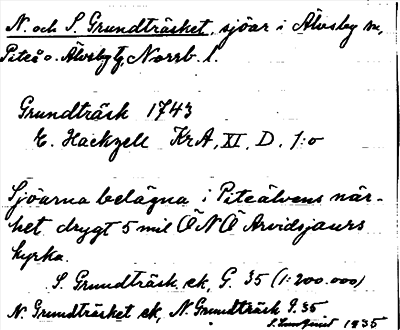 N. och S. Grundträsket, sjöar i Älvsby sn,
Piteå o. Älvsby tg, Norrb. l.
Grundträsk 1743
E. Hackzell KrA, XI, D. 1:o
Sjöarna belägna i Piteälvens när-
het drygt 5 mil ÖNÖ Arvidsjaurs
kyrka.
S. Grundträsk ek, G. 35 (1:200.000)
N. Grundträsket ek, N. Grundträsk G. 35
1935